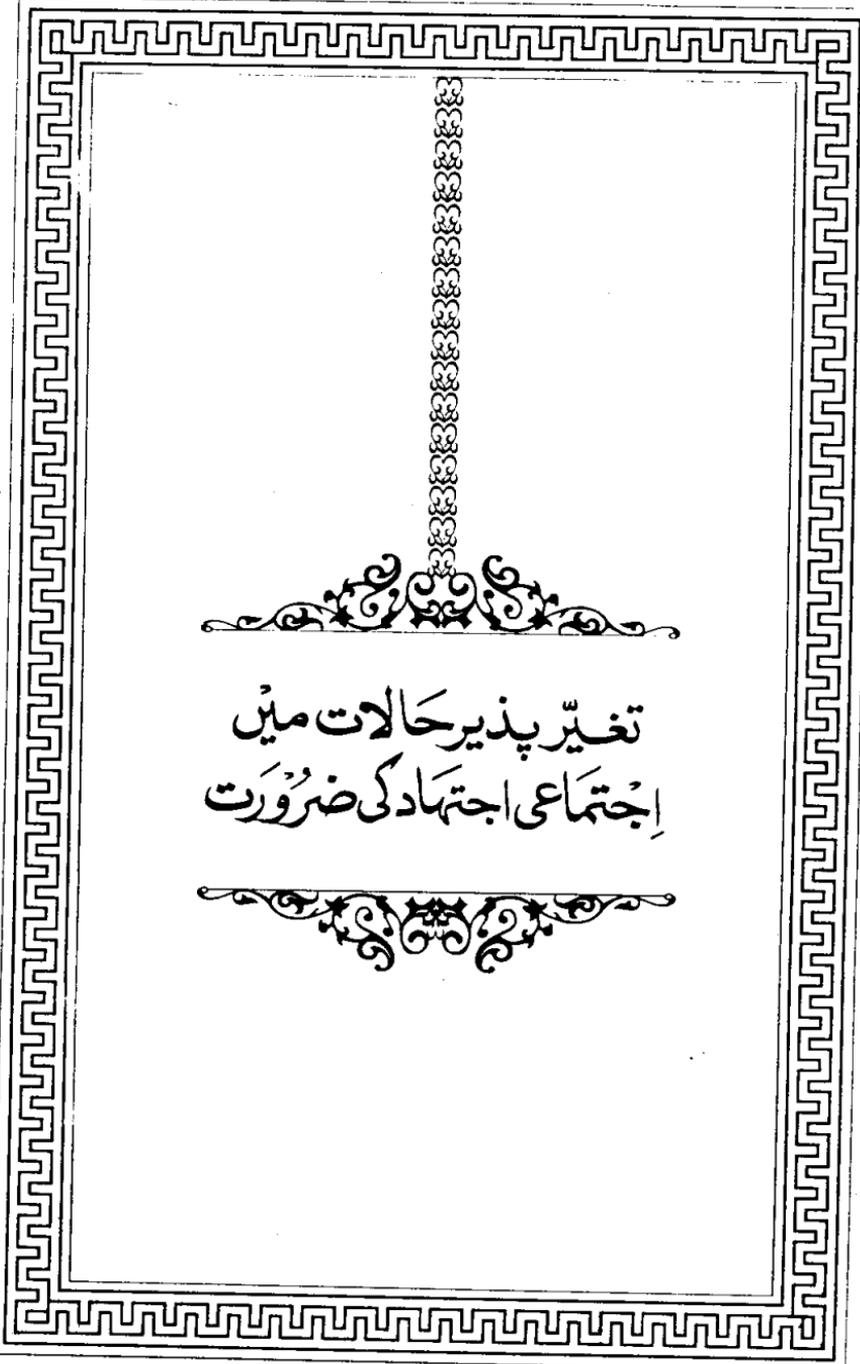 تغیّر پذیر حَالات میں
اِجْتمَاعی اجتہَاد کی ضرُوْرَت